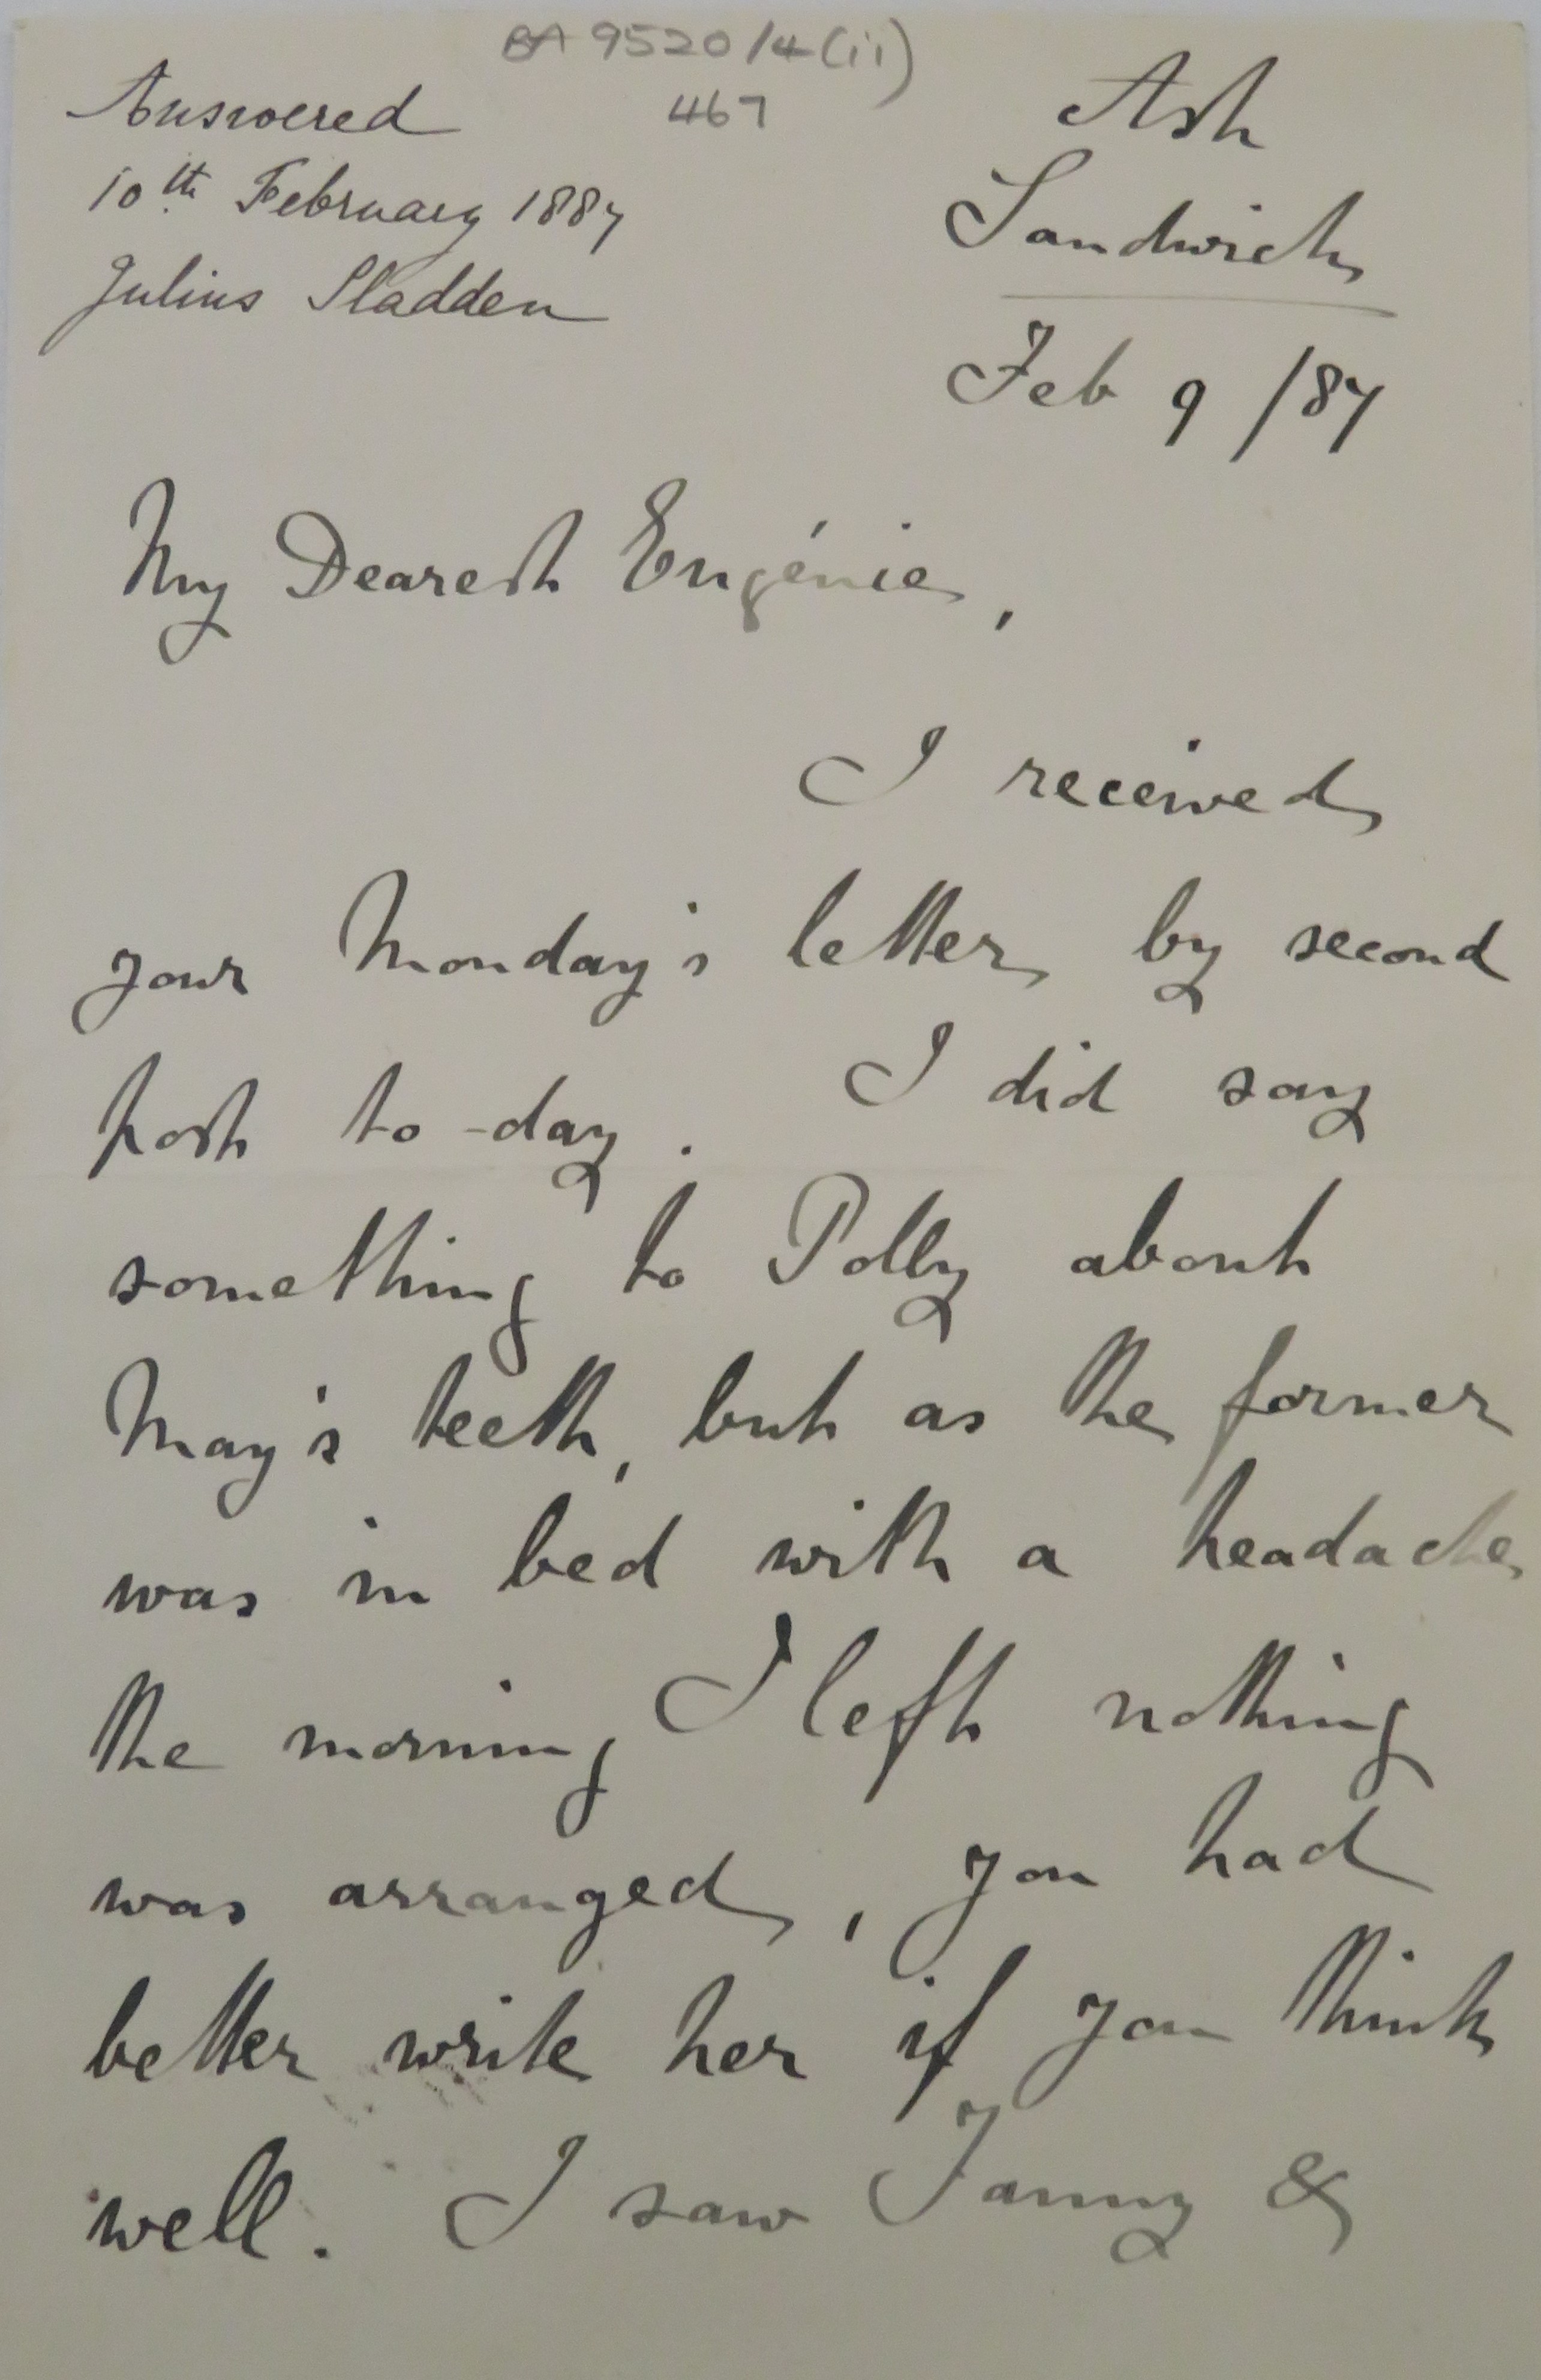 BA 9520/4(ii)
467
Answered
10th February 1887
Julius Sladden
Ash
Sandwich
Feb 9 /87
My Dearest Eugénie,
I received
your Monday's letter by second
post to-day. I did say
something to Polly about
May's teeth, but as the former
was in bed with a headache
the morning I left nothing
was arranged, you had
better write her if you think
well. I saw Fanny &